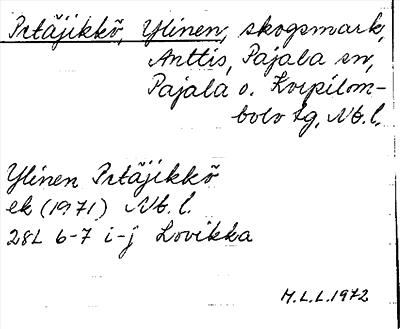 Pitäjikkö, Ylinen, skogsmark,
Anttis, Pajala sn,
Pajala o. Korpilom-
bolo tg, Nb. l.
Ylinen Pitäjikkö
ek (1971) Nb. l.
28L 6-7 i-j Lovikka
M.L.L. 1972